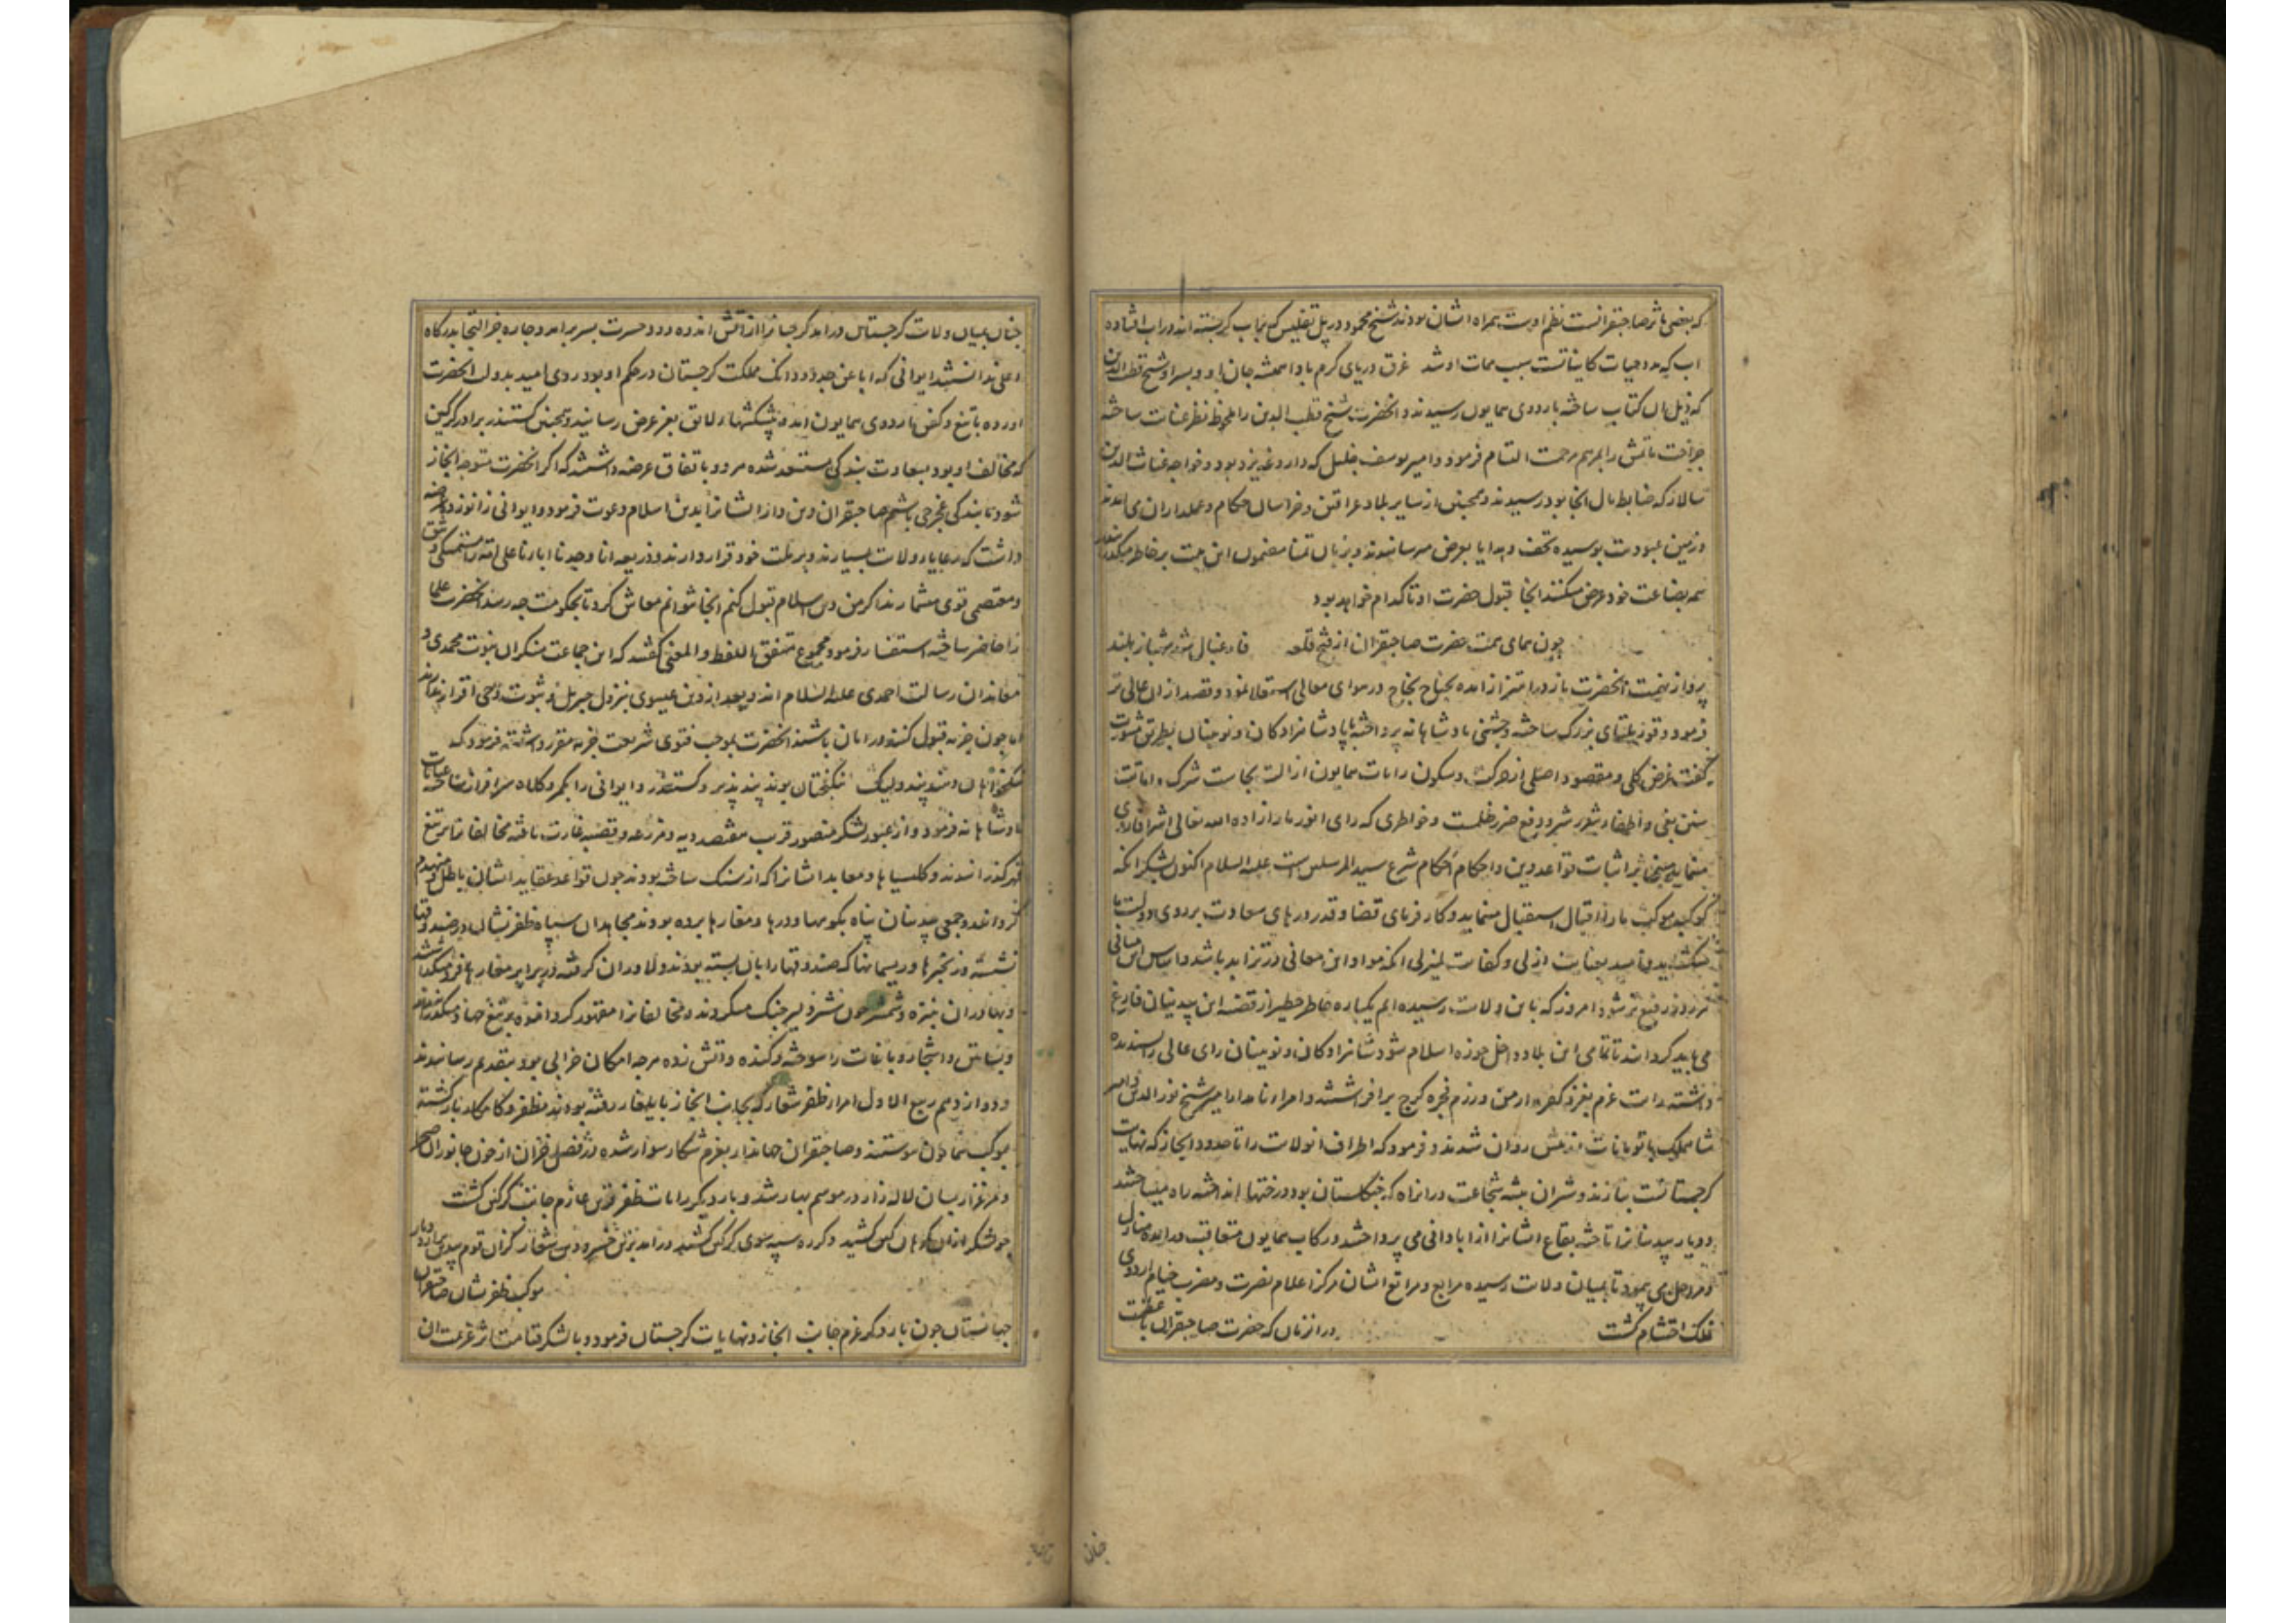 که بعضی ماثر صاحبقرانست نظم اوست همراه ایشان بودند شیخ محمود در پل تفلیس که بآب کر بسته اند در آب افتاده
اب که مدد حیات کایناتست سبب ممات او شد غرق دریای کرم باد همیشه جان او و پسر او شیخ قطب الدین
که ذیل ان کتاب ساخته باردوی همایون رسیدند و انحضرت شیخ قطب الدین را ملحوظ نظر عنایت ساخته
جراحت ماتمش را بمرهم مرحمت التیام فرمود و امیر یوسف جلیل که داروغه یزد بود و خواجه غیاث الدین
سالار که ضابط مال انجا بود رسیدند و همچنین از سایر بلاد عراقین و خراسان حکام و عملداران می امدند
و زمین عبودیت بوسیده تحف و هدایا بعرض میرسانیدند و بزبان تمنا مضمون این بیت بر خاطر میگذرانیدند
همه بضاعت خود عرض میکنند انجا قبول حضرت او تا کدام خواهد بود
چون همای همت حضرت صاحبقران از فتح قلعه فارغبال شد شهباز بلند
پرواز نهمت انحضرت باز در اهتزاز امده بجناح نجاح در هوای معالی استعلا نمود و قصد ازان عالی تر
فرمود و قوریلتای بزرگ ساخته و جشنی پادشاهانه پرداخته با پادشاهزادکان و نوینان بطریق مشورت
گفت غرض کلی و مقصود اصلی از حرکت و سکون رایات همایون ازالت نجاست شرک و اماتت
سنن بغی و اطفاء شرر شر و دفع ضرر ظلمت و خواطری که رای انور ما را زاده الله تعالی اشراقا روی
مینماید نتیجه اثبات قواعد دین و احکام احکام شرع سید المرسلین است علیه السلام اکنون بشکرانکه
کوکب موکب ما را اقبال استقبال مینماید و کارفرمای قضا و قدر درهای سعادت بر روی دولت ما
میکشاید بتایید عنایت ازلی و کفایت لم یزلی انکه مواد این معانی در تزاید باشد و اساس این مبانی
هر روز رفیع تر شود امروز که باین ولایت رسیده ایم یکباره خاطر خطیر از قضیه این بیدینان فارغ
می باید گردانید تا تمامی این بلاد داخل حوزه اسلام شود شاهزادکان و نوینان رای عالی را پسندیده
داشته رایت عزم بغزو کفره ارمن و رزم فجره کرج برافراشتند و امراء نامدار امیر شیخ نور الدین و امیر
شاهملک با تومانات از پیش روان شدند و فرمود که اطراف انولایت را تا حدود ابخاز که نهایت
گرجستانست بتازند و شیران بیشه شجاعت در انراه که جنگلستان بود درختها انداخته راه میساختند
و دیار بیدینانرا تاخته بقاع ایشانرا از آبادانی می پرداختند و رکاب همایون متعاقب در آمده منازل
و مراحل می پیمود تا بمیان ولایت رسیده مرابع و مراتع ایشان مرکز اعلام نصرت و مضرب خیام اردوی
فلک احتشام گشت در ان زمان که حضرت صاحبقران با عظمت
چنان بمیان ولایت گرجستان در امد گرجیانرا از آتش اندوه دود حسرت بسر برامد و چاره جز التجا بدرگاه
اعلی ندانستند ایوانی که ابا عن جد دو دانک مملکت گرجستان در حکم او بود روی امید بدولت انحضرت
اورده با تیغ و کفن باردوی همایون امد و پیشکشهاء لایق بعز عرض رسانید و همچنین کستندر برادر گرگین
که مخالف او بود بسعادت بندگی مستسعد شده هر دو باتفاق عرضه داشتند که اگر انحضرت متوجه ابخاز
شود ما بندگی
داشت که رعایا و ولایت بسیارند و بر ملت خود قرار دارند و ذریعه انا وجدنا اباءنا علی امة را متمسکی وثیق
و معتصمی قوی میشمارند اگر من دین اسلام قبول کنم انجا نتوانم معاش کرد تا بحکومت چه رسد انحضرت علما
را حاضر ساخته استفسار فرمود مجموع متفق اللفظ و المعنی گفتند که این جماعت منکران نبوت محمدی و
معاندان رسالت احمدی علیه السلام اند و بعد از دین عیسوی بنزول جبریل و ثبوت وحی اقرار ندارند
اما چون جزیه قبول کنند در امان باشند انحضرت بموجب فتوی شریعت جزیه مقرر داشته فرمود که
نیکخواهان دهند پند ولیک نیکبختان بوند پند پذیر و کستندر و ایوانی را بکمر و کلاه سرافراز ساخته عنایات
پادشاهانه فرمود و از عبور لشکر منصور قرب هفتصد دیه و مزرعه و قصبه غارت یافته مخالفانرا بر تیغ
قهر گذرانیدند و کلیسیاها و معابد ایشانرا که از سنگ ساخته بودند چون قواعد عقاید ایشان باطل و منهدم
گردانیدند و جمعی بیدینان پناه بکوهها و درها و مغارها برده بودند مجاهدان سپاه ظفر نشان در صندوقها
نشسته و زنجیرها و ریسمانها که صندوقها را بان بسته بودند دلاوران گرفته در برابر مغارها فرو میگذاشتند
و بهادران بنیزه و شمشیر چون شیر دلیر جنگ میکردند و مخالفانرا مقهور کرده
و بساتین و اشجار و باغات را سوخته و کنده و آتش زده هرچه امکان خرابی بود بتقدیم رسانیدند
و دوازدهم ربیع الاول امراء ظفر شعار که بجانب ابخاز بایلغار رفته بودند مظفر و کامکار باز گشته
بموکب همایون پیوستند و صاحبقران جهاندار بعزم شکار سوار شده در فصل خزان از خون جانوران صحرا
و مرغزار بسان لاله زار در موسم بهار شد و بار دیگر رایات ظفر قرین عازم جانب گرگین گشت
چو لشکر ازان کین کشید دگر ره سپه سوی گرگین کشید
موکب ظفر نشان صاحبقران
جهانستان چون بار دگر عزم جانب ابخاز و نهایات گرجستان فرمود و با لشکر قیامت اثر عزیمت ان